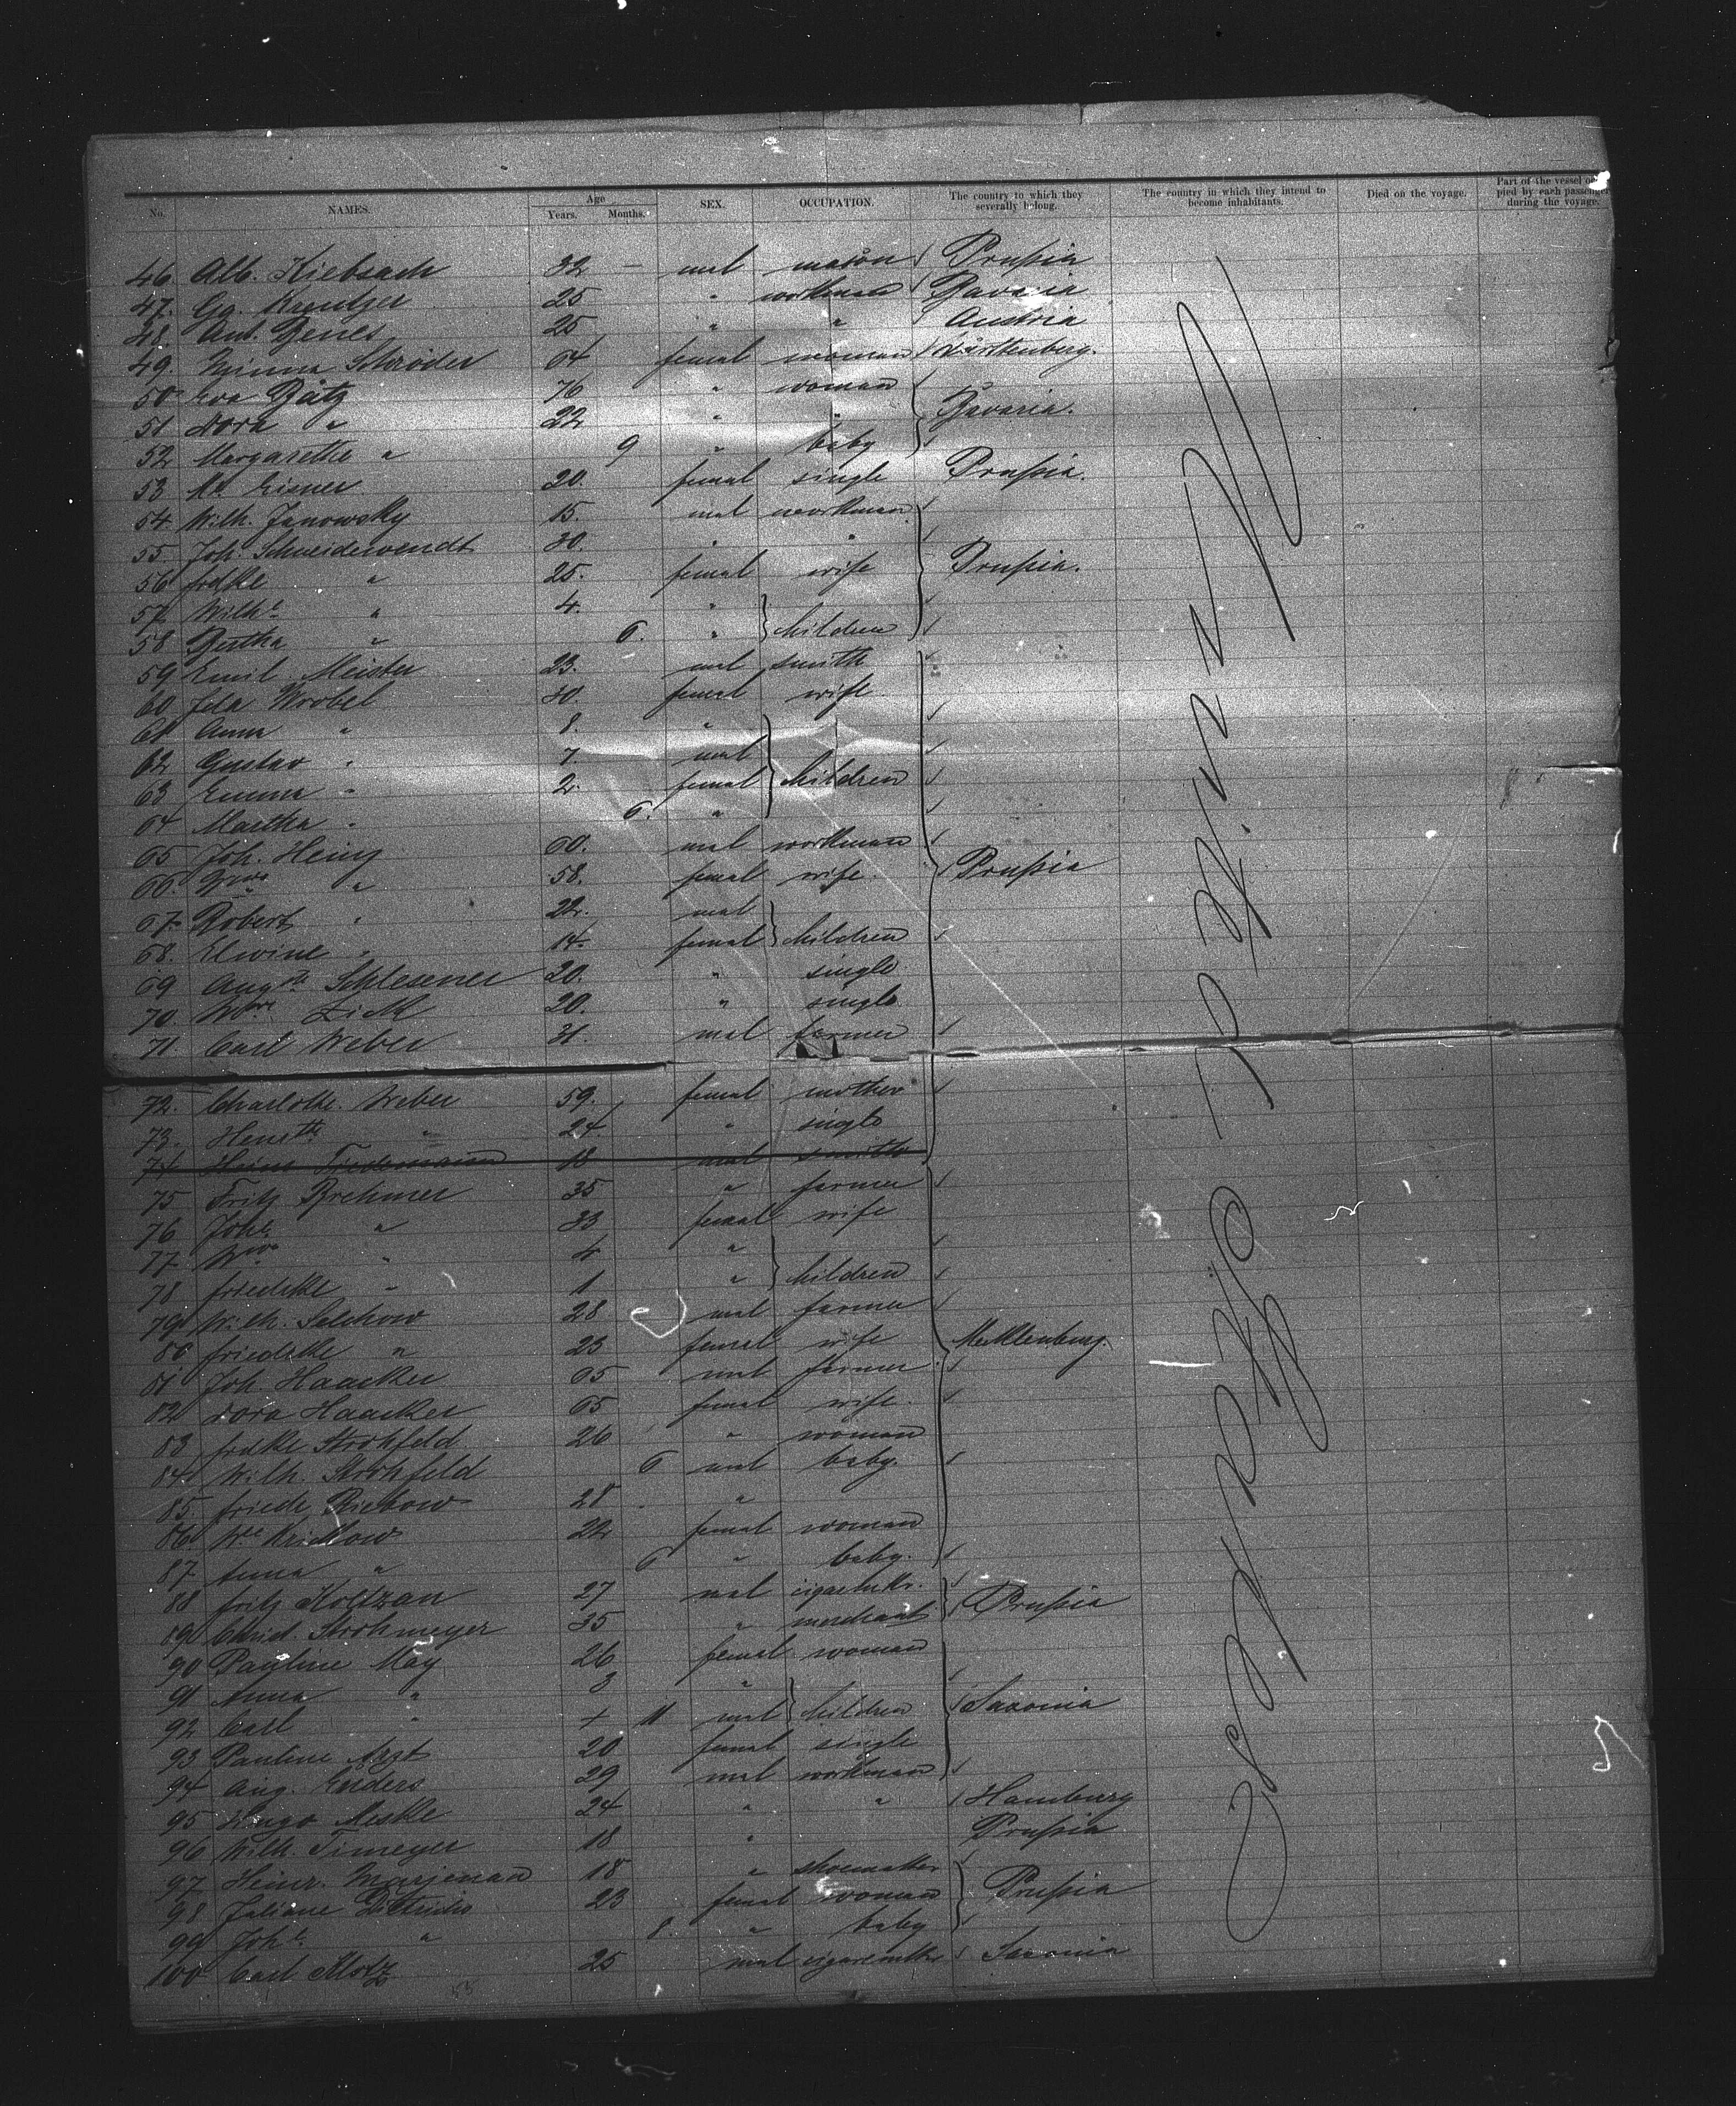 No. NAMES. Age Years. Months. SEX. OCCUPATION. The country to which they severally belong. The country in which they intend to become inhabitants. Died on the voyage. Part of the vessel occupied by each passenger during the voyage.
46 Alb. Kiebsach 32 — mal mason Prußia
47. Gg. Kreutzer 25 " workman Bavaria
48. Ant. Benes 25 " " Austria
49. Minna Schröder 64 femal woman Württenberg.
50 Eva Bätz 76 " woman
51 Dora " 22 " " Bavaria.
52 Margarethe " 9 " baby
53 Eisner 20. femal single Prußia.
54 Wilh. Janowsky 15. mal workman
55. Joh. Schneidewendt 30. " "
56 fredke " 25. femal wife Prußia.
57 Wilhe " 4. "
58 Bertha " 6. " children
59 Emil Meister 23. mal smith
60 Wrobel 30. femal wife
61 Anna " 8. "
62 Gustav " 7. mal
63 Emma " 2. femal children
64 Martha " 6. "
65 Joh. Heinz 60. mal workman
66. " 58. femal wife. Prußia
67 Robert " 22. mal
68. Elwine " 14. femal children
69 Augste Schlesener 20. " single
70. Zick 20. " single
71. Carl Weber 31. mal farmer
72. Charlotte Weber 59. femal mother
73. Henrtte " 24 " single
74 Heinr Friedemann 18 mal smith
75 Fritz Brehmer 35 " farmer
76 Johe " 33 femal wife
77 " 4 "
78 friedike " 1 " children
79 Wilh. Salchow 28 mal farmer
80 friedike " 23 femal wife Mecklenburg.
81 Joh. Haacker 65 mal farmer
82 Dora Haacker 65 femal wife
83 fredke Strohfeld 26 " woman
84 Wilh. Strohfeld 6 mal baby.
85. friede 28 "
86 22 femal woman
87 Anna " 6 " baby.
88 fritz Koltzau 27 mal
89 Christ. Strohmeyer 35 " merchant Prußia
90 Pauline May 26 femal woman
91 Anna " 3 "
92 Carl " + 11 mal children Saxonia
93 Pauline Arzt 20 femal single
94 Aug. Enders 29 mal workman
95 Hugo Meske 24 " " Hamburg
96 Wilh. Timeyer 18 " Prußia
97 Heinr. 18 " shoemaker
98 Juliane Dittrich 23 femal woman Prußia
99 Johe " 8. " baby
100 Carl Motz 25 mal Saxonia